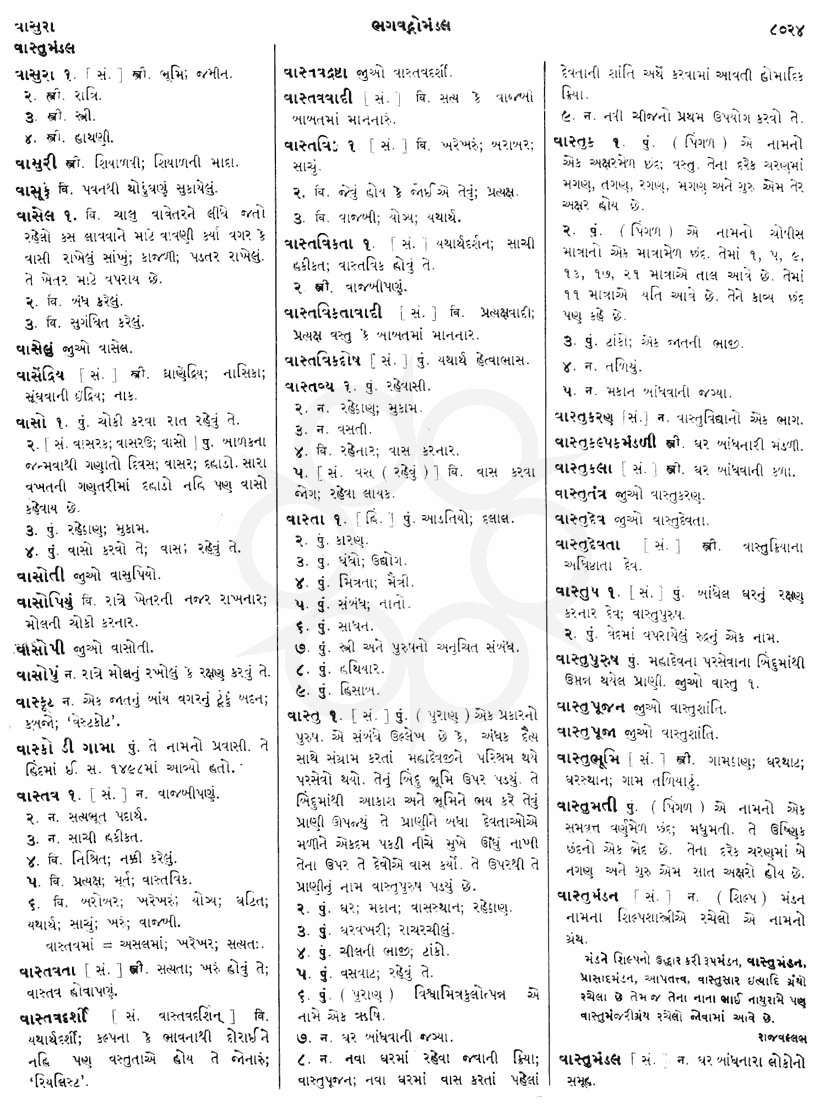 વાસુરા
ભગવદ્ગોમંડલ
૮૦૨૪
વાસ્તુમંડલ
વાસુરા ૧. [ સં. ] સ્ત્રી. ભૂમિ; જમીન.
૨. સ્ત્રી. રાત્રિ.
૩. સ્ત્રી. સ્ત્રી.
૪. સ્ત્રી. હાથણી.
વાસુરી સ્ત્રી. શિયાળવી; શિયાળની માદા.
વાસૂકું વિ. પવનથી થોડુંઘણું સુકાયેલું.
વાસેલ ૧. વિ. ચાલુ વાવેતરને લીધે જતો
રહેલો કસ લાવવાને માટે વાવણી કર્યા વગર કે
વાસી રાખેલું સાંખું; કાજળી; પડતર રાખેલું.
તે ખેતર માટે વપરાય છે.
૨. વિ. બંધ કરેલું.
૩. વિ. સુગંધિત કરેલું.
વાસેલું જુઓ વાસેલ.
વાસેંદ્રિય [ સં. ] સ્ત્રી. ઘ્રાણેંદ્રિય; નાસિકા;
સૂંઘવાની ઇંદ્રિય; નાક.
વાસો ૧. પું. ચોકી કરવા રાત રહેવું તે.
૨. [ સં. વાસરક; વાસરઉ; વાસો ] પું. બાળકના
જન્મવાથી ગણાતો દિવસ; વાસર; દહાડો. સારા
વખતની ગણતરીમાં દહાડો નહિ પણ વાસો
કહેવાય છે.
૩. પું. રહેઠાણ; મુકામ.
૪. પું. વાસો કરવો તે; વાસ; રહેવું તે.
વાસોતી જુઓ વાસુપિયો.
વાસોપિયું વિ. રાત્રે ખેતરની નજર રાખનાર;
મોલની ચોકી કરનાર.
વાસોપી જુઓ વાસોતી.
વાસોપું ન. રાત્રે મોલનું રખોલું કે રક્ષણ કરવું તે.
વાસ્કૂટ ન. એક જાતનું બાંય વગરનું ટૂંકું બદન;
કબજો; ‘વેસ્ટકોટ’.
વાસ્કો ડી ગામા પું. તે નામનો પ્રવાસી. તે
હિંદમાં ઈ. સ. ૧૪૯૮માં આવ્યો હતો.
વાસ્તવ ૧. [ સં. ] ન. વાજબીપણું.
૨. ન. સત્યભૂત પદાર્થ.
૩. ન. સાચી હકીકત.
૪. વિ. નિશ્ચિત; નક્કી કરેલું.
૫. વિ. પ્રત્યક્ષ; મૂર્ત; વાસ્તવિક.
૬. વિ. બરોબર; ખરેખરું; યોગ્ય; ઘટિત;
યથાર્થ; સાચું; ખરું; વાજબી.
વાસ્તવમાં = અસલમાં; ખરેખર; સત્યતઃ.
વાસ્તવતા [ સં. ] સ્ત્રી. સત્યતા; ખરું હોવું તે;
વાસ્તવ હોવાપણું.
વાસ્તવદર્શી [ સં. વાસ્તવદર્શિન્ ] વિ.
યથાર્થદર્શી; કલ્પના કે ભાવનાથી દોરાઈને
નહિ પણ વસ્તુતાએ હોય તે જોનારું;
‘રિયલિસ્ટ’.
વાસ્તવદ્રષ્ટા જુઓ વાસ્તવદર્શી.
વાસ્તવવાદી [ સં. ] વિ. સત્ય કે વાજબી
બાબતમાં માનનારું.
વાસ્તવિક ૧ [ સં. ] વિ. ખરેખરું; બરાબર;
સાચું.
૨. વિ. જેવું હોય કે જોઈએ તેવું; પ્રત્યક્ષ.
૩. વિ. વાજબી; યોગ્ય; યથાર્થ.
વાસ્તવિકતા ૧. [ સં. ] યથાર્થદર્શન; સાચી
હકીકત; વાસ્તવિક હોવું તે.
૨ સ્ત્રી. વાજબીપણું.
વાસ્તવિકતાવાદી [ સં. ] વિ. પ્રત્યક્ષવાદી;
પ્રત્યક્ષ વસ્તુ કે બાબતમાં માનનાર.
વાસ્તવિકદોષ [ સં. ] પું. યથાર્થ હેત્વાભાસ.
વાસ્તવ્ય ૧. પું. રહેવાસી.
૨. ન. રહેઠાણ; મુકામ.
૩. ન. વસતી.
૪. વિ. રહેનાર; વાસ કરનાર.
૫. [ સં. વસ્ ( રહેવું ) ] વિ. વાસ કરવા
જોગ; રહેવા લાયક.
વાસ્તા ૧. [ હિં. ] પું. આડતિયો; દલાલ.
૨. પું. કારણ.
૩. પું. ધંધો; ઉદ્યોગ.
૪. પું. મિત્રતા; મૈત્રી.
૫. પું. સંબંધ; નાતો.
૬. પું. સાધન.
૭. પું. સ્ત્રી અને પુરુષનો અનુચિત સંબંધ.
૮. પું. હથિયાર.
૯. પું. હિસાબ.
વાસ્તુ ૧. [ સં. ] પું. ( પુરાણ ) એક પ્રકારનો
પુરુષ. એ સંબંધે ઉલ્લેખ છે કે, અંધક દૈત્ય
સાથે સંગ્રામ કરતાં મહાદેવજીને પરિશ્રમ થયે
પરસેવો થયો. તેનું બિંદુ ભૂમિ ઉપર પડ્યું. તે
બિંદુમાંથી આકાશ અને ભૂમિને ભય કરે તેવું
પ્રાણી ઉપજ્યું તે પ્રાણીને બધા દેવતાઓએ
મળીને એકદમ પકડી નીચે મુખે ઊંધું નાખી
તેના ઉપર તે દેવોએ વાસ કર્યો. તે ઉપરથી તે
પ્રાણીનું નામ વાસ્તુપુરુષ પડ્યું છે.
૨. પું. ઘર; મકાન; વાસસ્થાન; રહેઠાણ.
૩. પું. ઘરવખરી; રાચરચીલું.
૪. પું. ચીલની ભાજી; ટાંકો.
૫. પું. વસવાટ; રહેવું તે.
૬. પું. ( પુરાણ ) વિશ્વામિત્રકુલોત્પન્ન એ
નામે એક ઋષિ.
૭. ન. ઘર બાંધવાની જગ્યા.
૮. ન. નવા ઘરમાં રહેવા જવાની ક્રિયા;
વાસ્તુપૂજન; નવા ઘરમાં વાસ કરતાં પહેલાં
દેવતાની શાંતિ અર્થે કરવામાં આવતી હોમાદિક
ક્રિયા.
૯. ન. નવી ચીજનો પ્રથમ ઉપયોગ કરવો તે.
વાસ્તુક ૧. પું. ( પિંગળ ) એ નામનો
એક અક્ષરમેળ છંદ; વસ્તુ. તેના દરેક ચરણમાં
મગણ, તગણ, રગણ, મગણ અને ગુરુ એમ તેર
અક્ષર હોય છે.
૨. પું. ( પિંગળ ) એ નામનો ચોવીસ
માત્રાનો એક માત્રામેળ છંદ. તેમાં ૧, ૫, ૯,
૧૩, ૧૭, ૨૧ માત્રાએ તાલ આવે છે. તેમાં
૧૧ માત્રાએ યતિ આવે છે. તેને કાવ્ય છંદ
પણ કહે છે.
૩. પું. ટાંકો; એક જાતની ભાજી.
૪. ન. તળિયું.
૫. ન. મકાન બાંધવાની જગ્યા.
વાસ્તુકરણ [સં.] ન. વાસ્તુવિદ્યાનો એક ભાગ.
વાસ્તુકલ્પકમંડળી સ્ત્રી. ઘર બાંધનારી મંડળી.
વાસ્તુકલા [ સં. ] સ્ત્રી. ઘર બાંધવાની કળા.
વાસ્તુતંત્ર જુઓ વાસ્તુકરણ.
વાસ્તુદેવ જુઓ વાસ્તુદેવતા.
વાસ્તુદેવતા [ સં. ] સ્ત્રી. વાસ્તુક્રિયાના
અધિષ્ઠાતા દેવ.
વાસ્તુપ ૧. [ સં. ] પું. બાંધેલ ઘરનું રક્ષણ
કરનાર દેવ; વાસ્તુપુરુષ.
૨. પું. વેદમાં વપરાયેલું રુદ્રનું એક નામ.
વાસ્તુપુરુષ પું. મહાદેવના પરસેવાના બિંદુમાંથી
ઉત્પન્ન થયેલ પ્રાણી. જુઓ વાસ્તુ ૧.
વાસ્તુપૂજન જુઓ વાસ્તુશાંતિ.
વાસ્તુપૂજા જુઓ વાસ્તુશાંતિ.
વાસ્તુભૂમિ [ સં. ] સ્ત્રી. ગામઠાણ; ઘરથાટ;
ઘરસ્થાન; ગામ તળિયાટું.
વાસ્તુમતી પું. ( પિંગળ ) એ નામનો એક
સમવૃત્ત વર્ણમેળ છંદ; મધુમતી. તે ઉષ્ણિક
છંદનો એક ભેદ છે. તેના દરેક ચરણમાં બે
નગણ અને ગુરુ એમ સાત અક્ષરો હોય છે.
વાસ્તુમંડન [ સં. ] ન. ( શિલ્પ ) મંડન
નામના શિલ્પશાસ્ત્રીએ રચેલો એ નામનો
ગ્રંથ.
મંડને શિલ્પનો ઉદ્ધાર કરી રૂપમંડન, વાસ્તુમંડન,
પ્રાસાદમંડન, આપતત્ત્વ, વાસ્તુસાર ઇત્યાદિ ગ્રંથો
રચેલા છે તેમજ તેના નાના ભાઈ નાથુરામે પણ
વાસ્તુમંજરીગ્રંથ રચેલો જોવામાં આવે છે.
રાજવલ્લભ
વાસ્તુમંડલ [ સં. ] ન. ઘર બાંધનારા લોકોનો
સમૂહ.